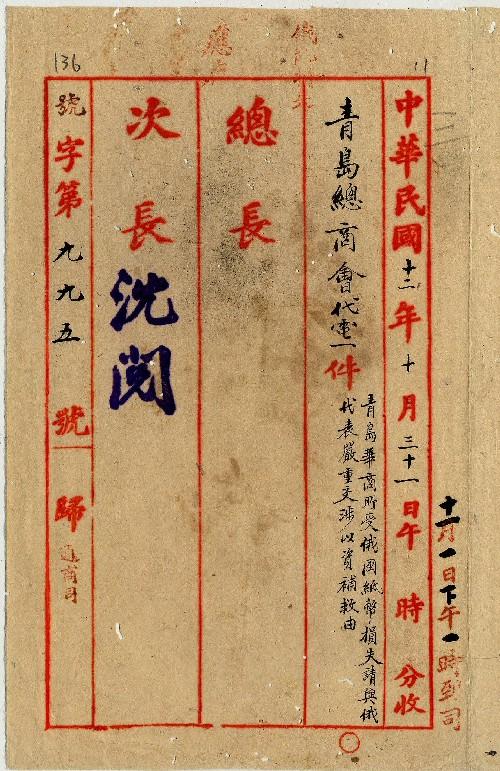 136
11
十一月一日下午一時到司
中華民國十二年十月三十一日午時分收
青島總商會代電一件
青島華商所受俄國紙幣損失請與俄
代表嚴重交涉以資補救由
總長
次長
沈閱
號字第九九五號歸通商司